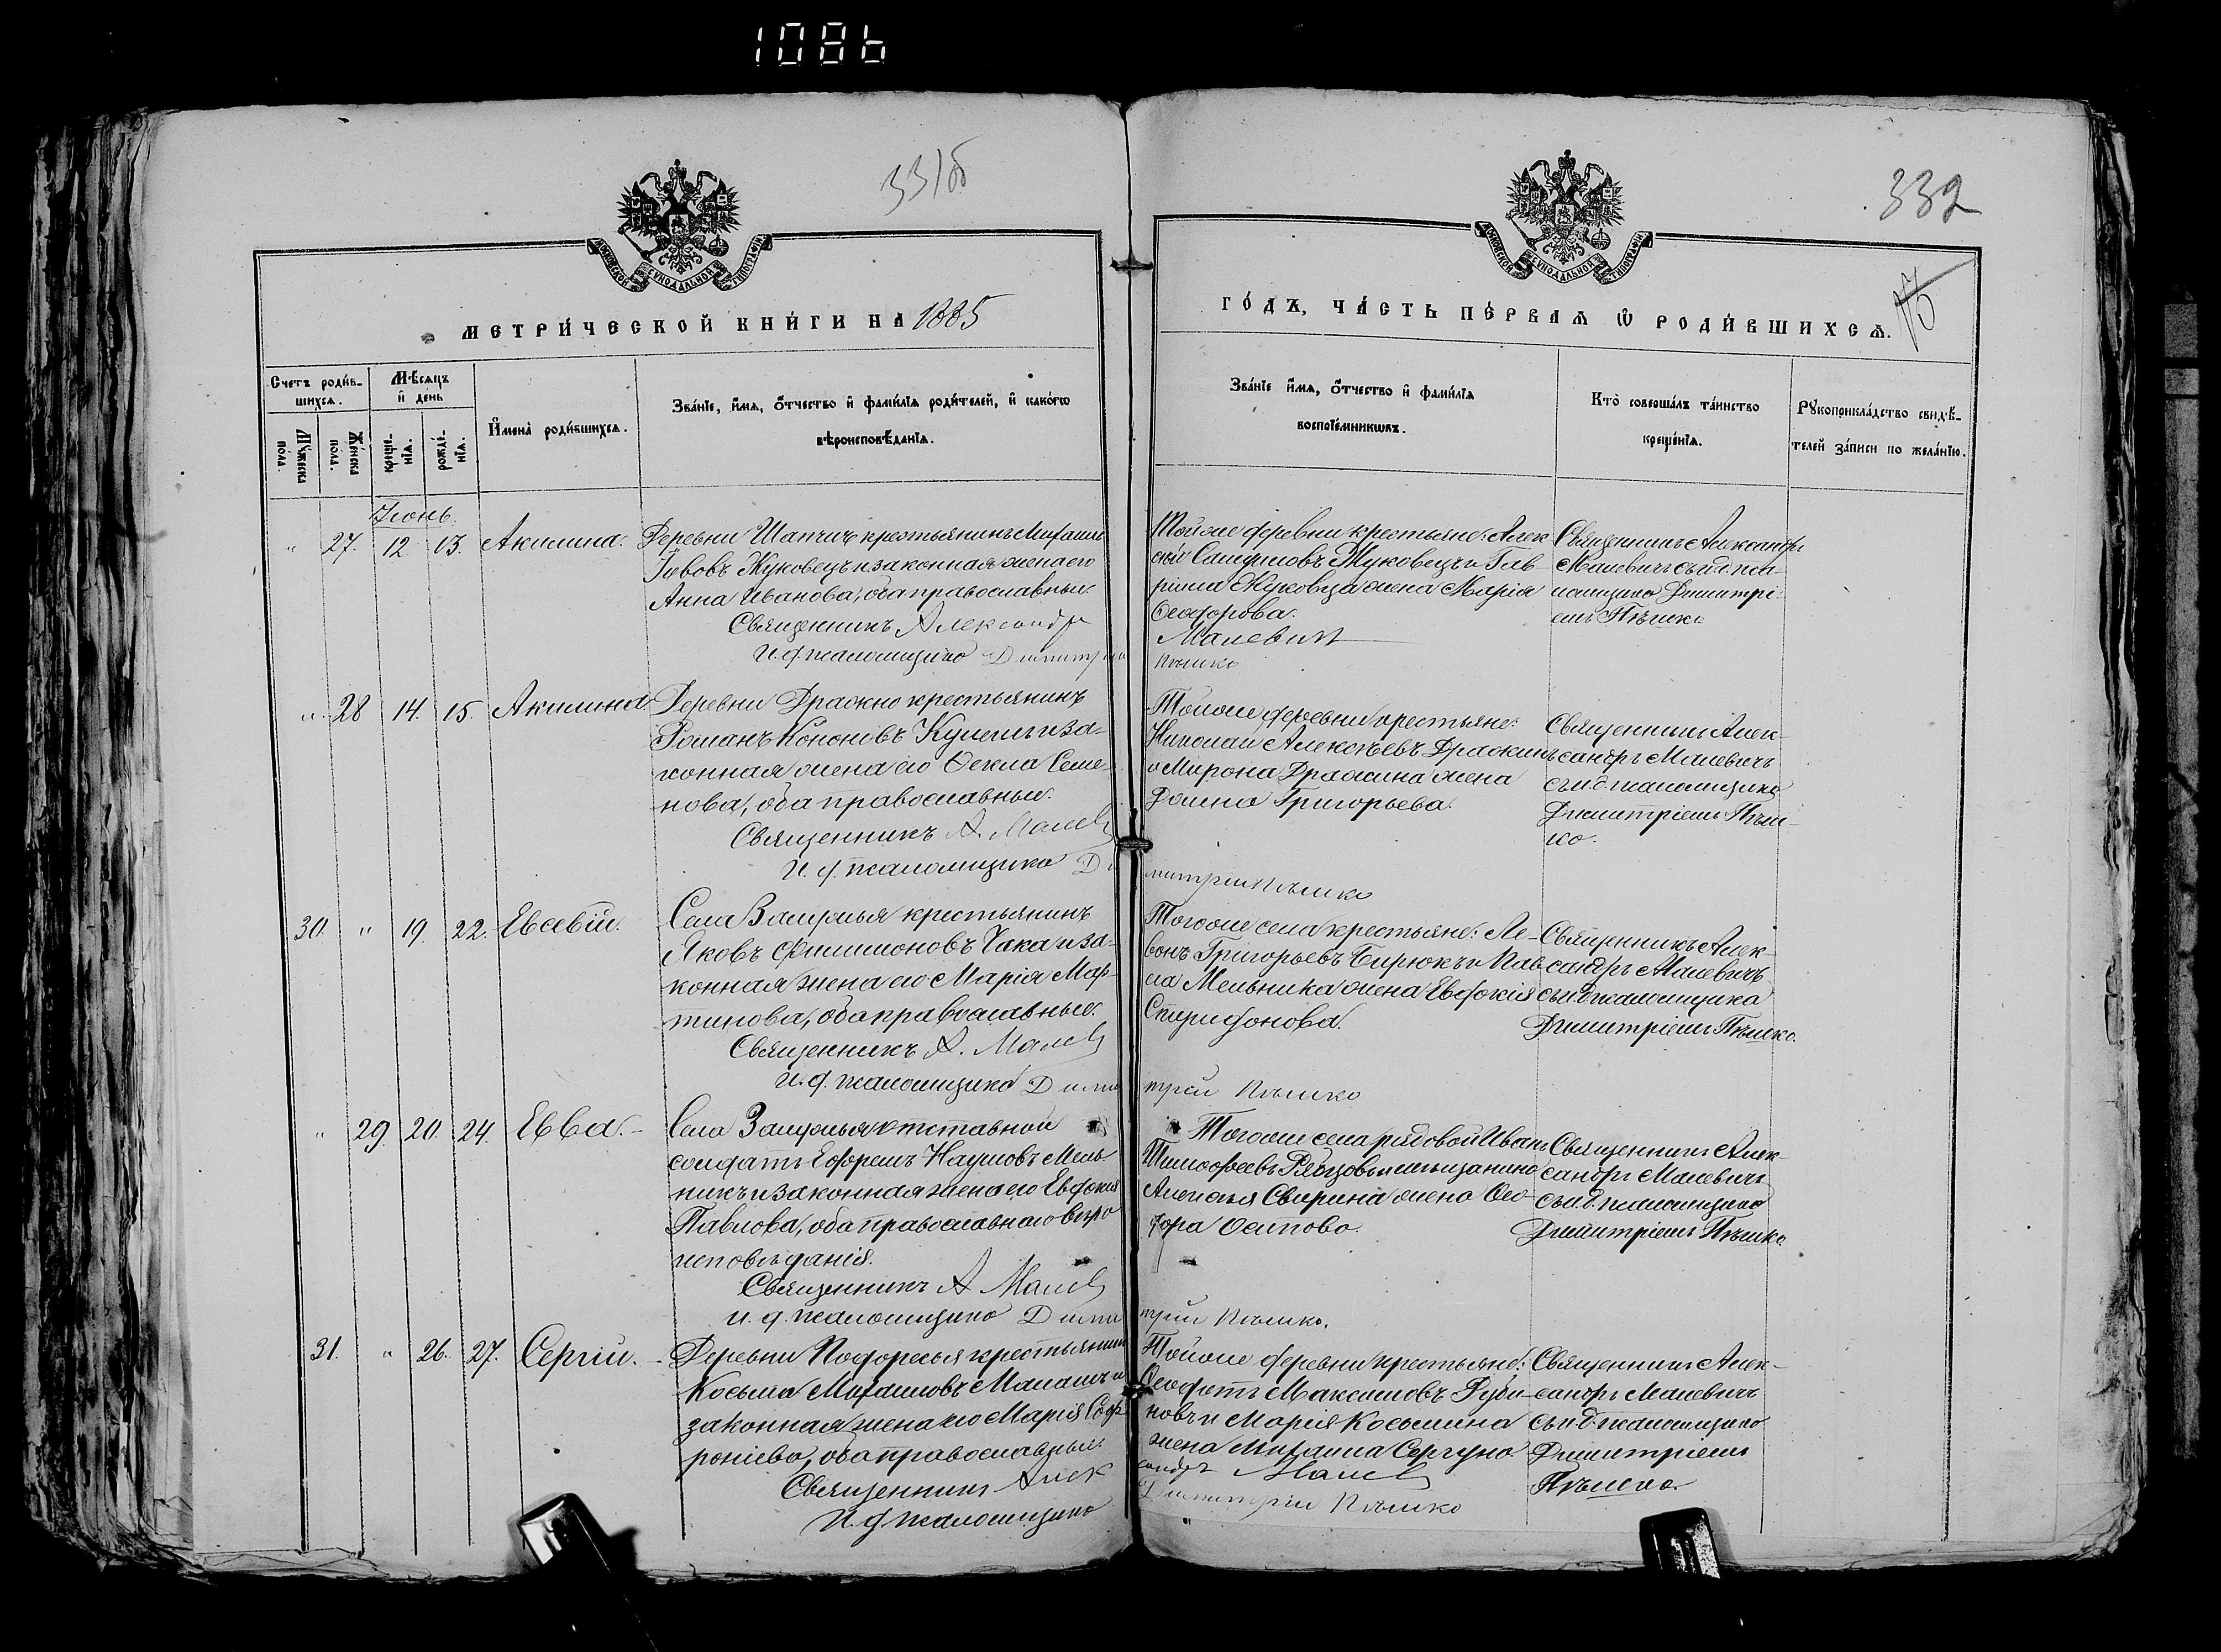 1086
331б
332
МОСКОВСКОЙ СУНОДАЛЬНОЙ ТИПОГРАФІИ
МОСКОВСКОЙ СУНОДАЛЬНОЙ ТИПОГРАФІИ
МЕТРИ́ЧЕСКОЙ КНИ́ГИ НА 1885
ГО́ДЪ, ЧА́СТЬ ПЕ́РВАѦ Ѿ РОДИ́ВШИХСѦ.
Счетъ роди́в-
шихсѧ.
Мѣсѧцъ
и҆ день
Мꙋжеска
пола.
Женска
пола.
креще-
нїѧ.
рожде́-
нїѧ.
И҆мена̀ роди́вшихсѧ.
Зва́нїе, и҆́мѧ, ѻ҆́тчество и҆ фами́лїѧ роди́телей, и҆ како́гѡ
вѣроисповѣ́данїѧ.
Зва́нїе и҆́мѧ, ѻ҆́тчество и҆ фами́лїѧ
воспрїе́мникѡвъ.
Кто̀ соверша́лъ та́инство
креще́нїѧ.
Рꙋкоприкла́дство свидѣ́-
телей за́писи по жела́нїю.
Іюнь.
" 27. 12 13. Акилина.
Деревни Шапчичъ крестьянинъ Михаилъ
Жуковецъ и законная жена его
Анна Иванова, оба православные.
Священникъ Александръ
И. д. псаломщика Димитрій
Той же деревни крестьяне: Алек-
сѣй Самуиловъ Жуковецъ и Гав-
ріила Жуковца жена Марія
Ѳеодорова.
Малевичъ
Пѣшко
Священникъ Александръ
Малевичъ съ и. д. пса-
ломщика Димитрі-
емъ Пѣшко
" 28 14. 15. Акилина.
Деревни Дражно крестьянинъ
Романъ Кононовъ и за-
конная жена его Ѳекла Семе-
нова, оба православные.
Священникъ А. Малев
И. д. псаломщика Ди
Той же деревни крестьяне:
Николай Алексѣевъ Дражинъ
и Мирона Дражина жена
Домна Григорьева.
митрій Пѣшко
Священникъ Алек-
сандръ Малевичъ
съ и. д. псаломщика
Димитріемъ Пѣш-
ко.
30. " 19. 22. Евсевій.
Села крестьянинъ
Яковъ Филимоновъ Чака и за-
конная жена его Марія Мар-
тинова, оба православные.
Священникъ А. Малев
И. д. псаломщика Дими
Того же села крестьяне: Ле-
вонъ Григорьевъ Бирюкъ и Пав-
ла Мельника жена Евдокія
Спиридонова.
трій Пѣшко
Священникъ Алек-
сандръ Малевичъ
съ и. д. псаломщика
Димитріемъ Пѣшко.
" 29. 20. 24. Евва.
Села отставной
солдатъ Ефремъ Наумовъ Мель-
никъ и законная жена его Евдокія
Павлова, оба православнаго вѣро-
исповѣданія.
Священникъ А Малев
И. д. псаломщика Дими
Того же села рядовой Иванъ
Тимофеевъ и мѣщанина
Алексѣя Свирина жена Ѳео-
дора Осипова.
трій Пѣшко.
Священникъ Алек-
сандръ Малевичъ
съ и. д. псаломщика
Димитріемъ Пѣшко.
31. " 26. 27. Сергій.
Деревни Подоресья крестьянинъ
Косьма Михаиловъ и
законная жена его Марія Соф-
роніева, оба православные.
Священникъ Алек
И. д. псаломщика
Той же деревни крестьяне:
Ѳеодотъ Максимовъ Руби-
новъ и Марія Косьмина
жена Михаила Сергуна.
сандръ Малев
Димитрій Пѣшко
Священникъ Алек-
сандръ Малевичъ
съ и. д. псаломщика
Димитріемъ
Пѣшко.